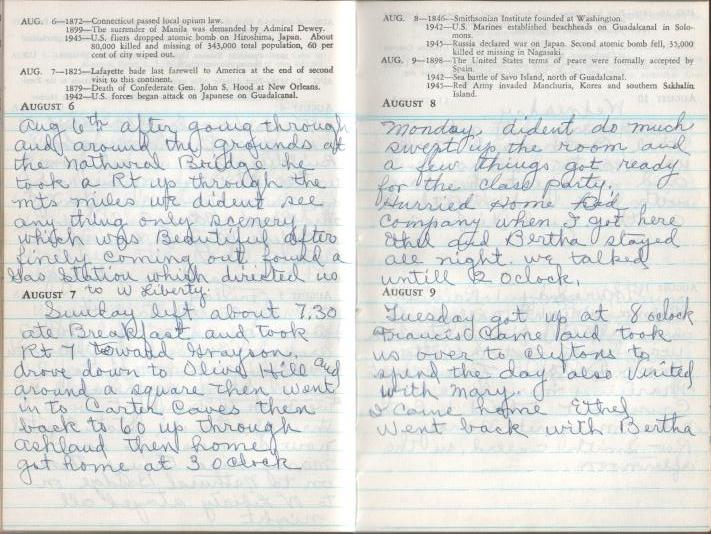 AUG. 6—1872—Connecticut passed local opium law.
1899—The surrender of Manila was demanded by Admiral Dewey.
1945—U.S. fliers dropped atomic bomb on Hiroshima, Japan. About
80,000 killed and missing of 343,000 total population, 60 per
cent of city wiped out.
AUG. 7—1825—Lafayette bade last farewell to America at the end of second
visit to this continent.
1879—Death of Confederate Gen. John S. Hood at New Orleans.
1942—U.S. forces began attack on Japanese on Guadalcanal.
AUGUST 6
Aug 6th after going through
and around the grounds at
the Nathural Bridge he
took a Rt up through the
mts miles we dident see
any thing only scenery
which was Beautiful after
finely coming out found a
Gas Station which directed us
to W Liberty.
AUGUST 7
Sunday left about 7,30
ate Breakfast and took
Rt 7 toward Grayson,
drove down to Olive Hill and
around a square then went
in to Carter Caves then
back to 60 up through
ashland then home
got home at 3 oclock
AUG. 8—1846—Smithsonian Institute founded at Washington.
1942—U.S. Marines established beachheads on Guadalcanal in Solo-
mons.
1945—Russia declared war on Japan. Second atomic bomb fell, 35,000
killed or missing in Nagasaki.
AUG. 9—1898—The United States terms of peace were formally accepted by
Spain.
1942—Sea battle of Savo Island, north of Guadalcanal.
1945—Red Army invaded Manchuria, Korea and southern Sakhalin
Island.
AUGUST 8
Monday, dident do much
swept up the room and
a few things got ready
for the class party.
Hurried Home Had
company when I got here
Ethel and Bertha stayed
all night. we talked
untill 12 oclock,
AUGUST 9
Tuesday got up at 8 oclock
Francis Came and took
us over to Cliftons to
spend the day also Visited
with Mary.
I came home Ethel
Went back with Bertha